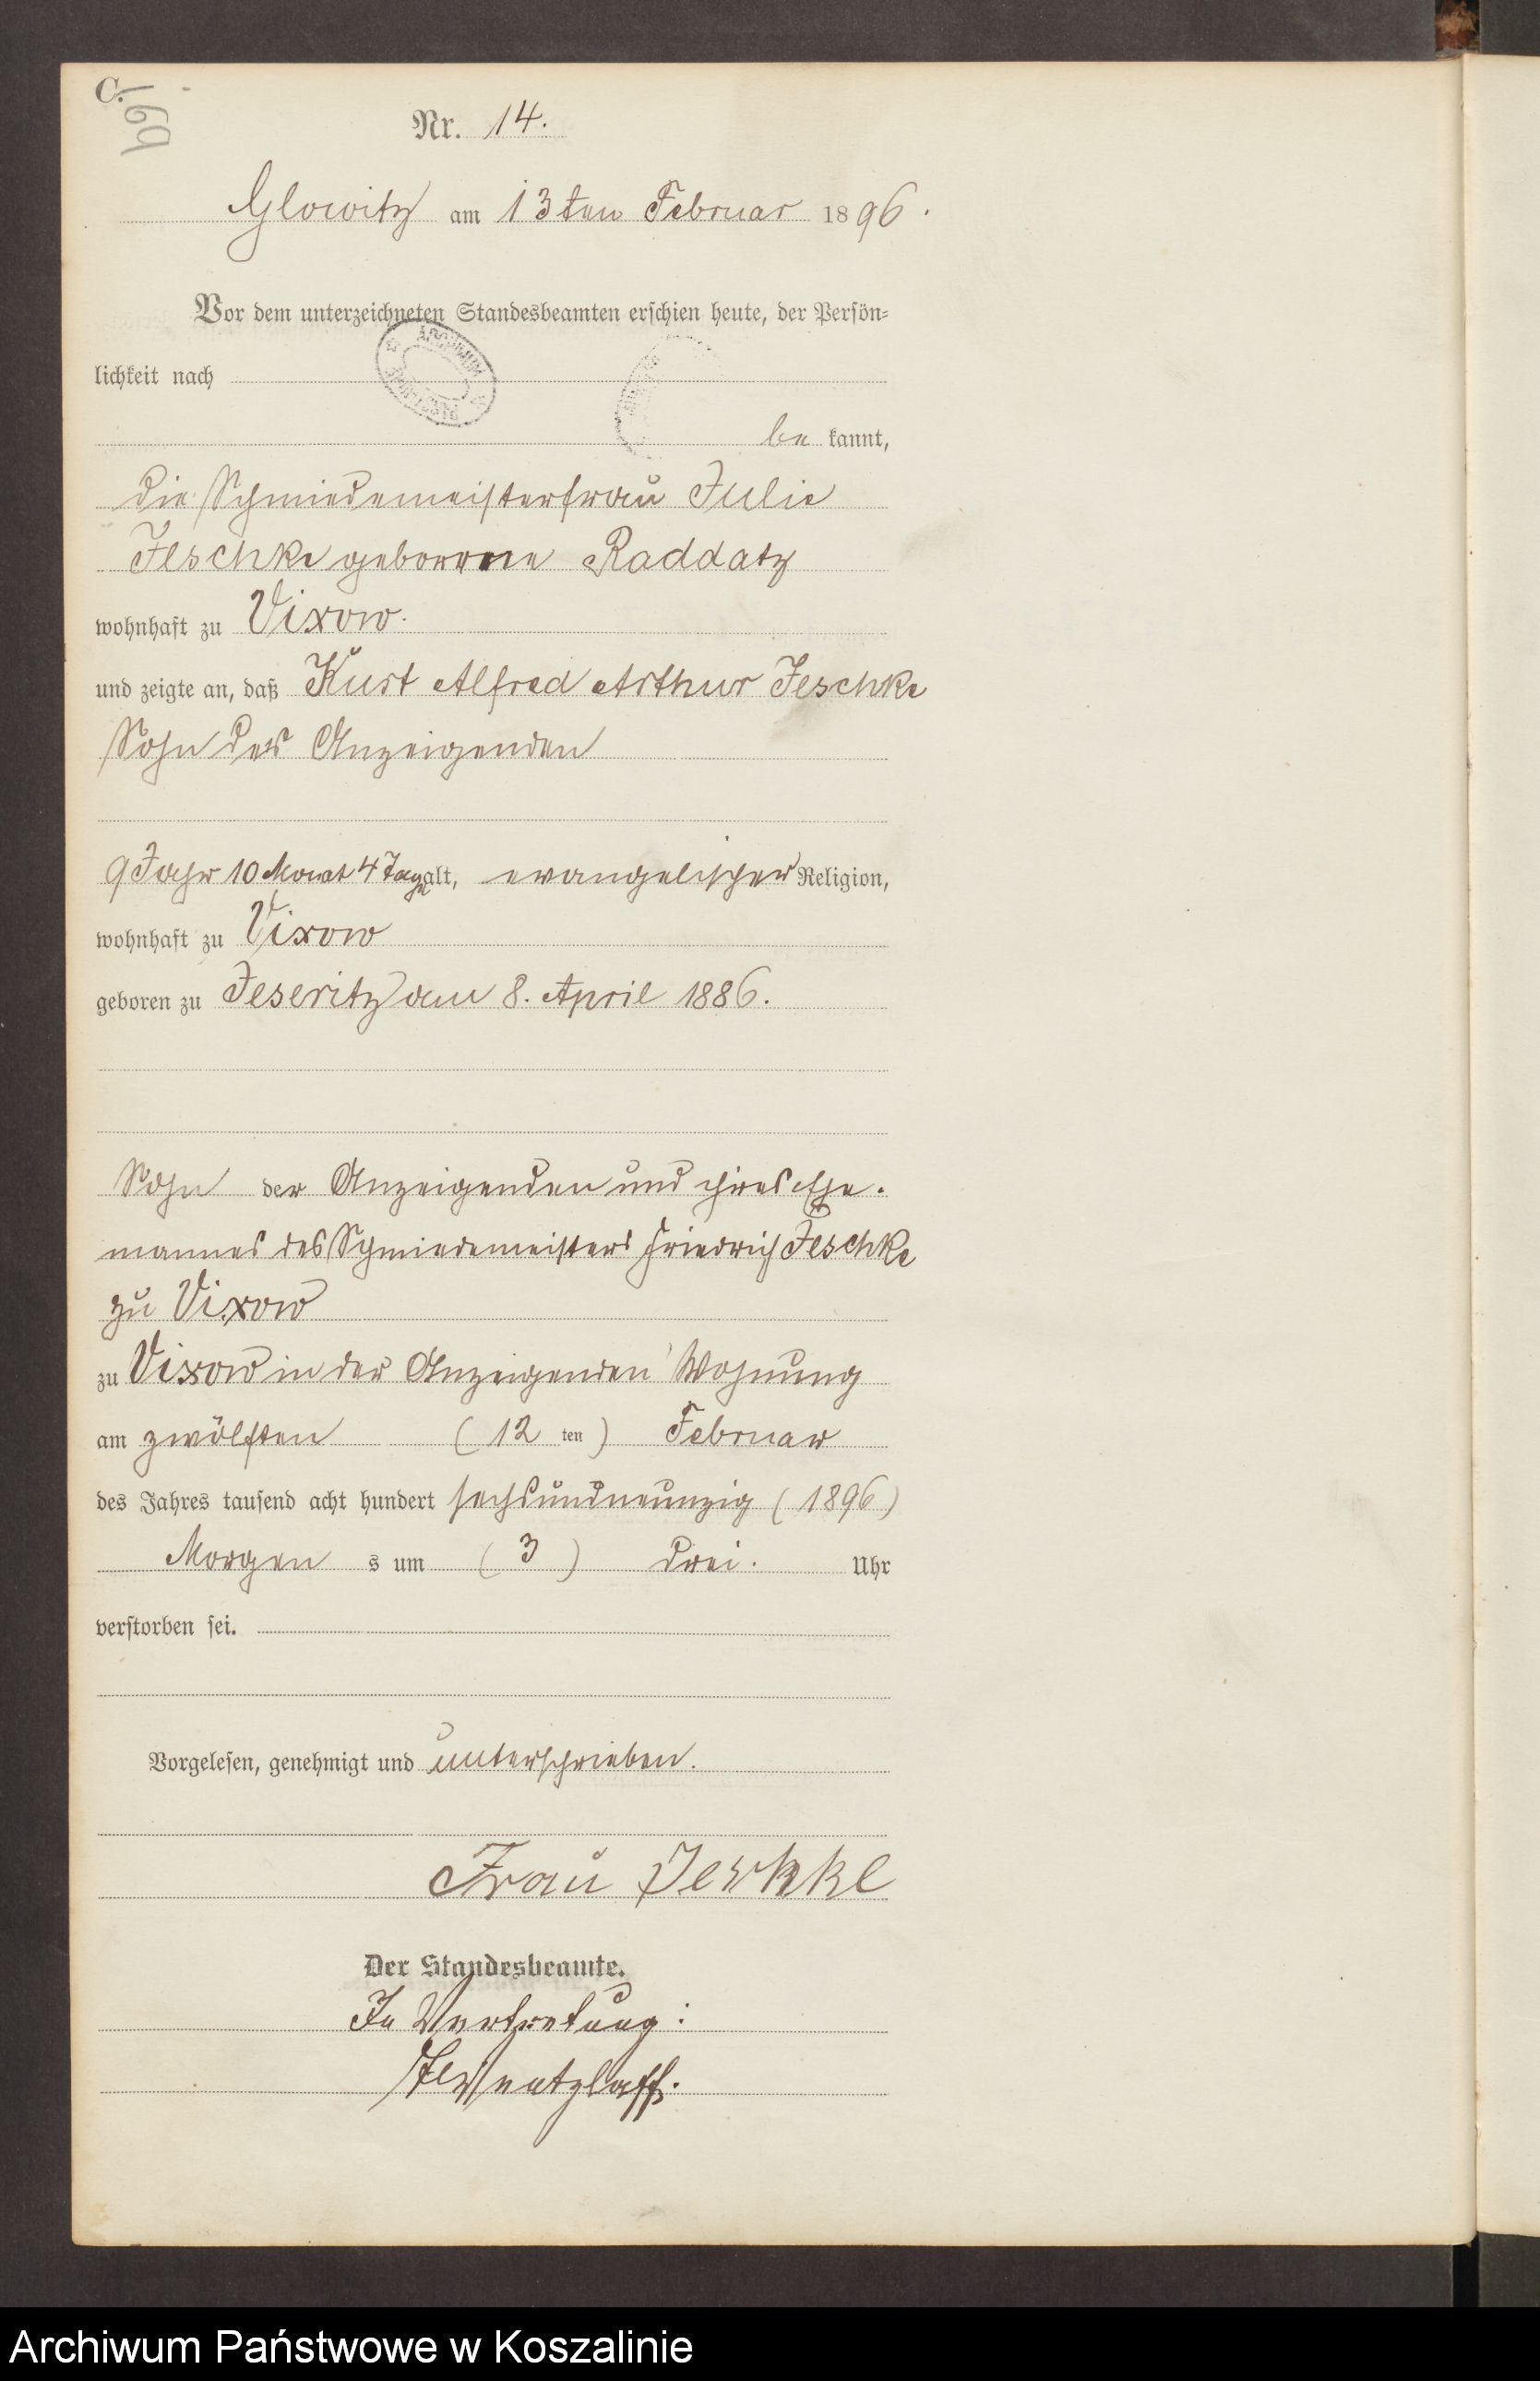 C.
169
Nr. 14.
Glowitz am 13ten Februar 1896.
Vor dem unterzeichneten Standesbeamten erschien heute, der Persön-
lichkeit nach
be kannt,
die Schmiedemeisterfrau Julie
Jeschke geborene Raddatz
wohnhaft zu Vixow.
und zeigte an, daß Kurt Alfred Arthur Jeschke
Sohn der Anzeigenden
9 Jahr 10 Monat 4 Tage alt, evangelischer Religion,
wohnhaft zu Vixow
geboren zu Jeseritz am 8. April 1886.
Sohn der Anzeigenden und ihres Ehe-
mannes des Schmiedemeisters Friedrich Jeschke
zu Vixow
zu Vixow in der Anzeigenden Wohnung
am zwölften (12 ten) Februar
des Jahres tausend acht hundert sechsundneunzig (1896)
Morgen s um (3) drei. Uhr
verstorben sei.
Vorgelesen, genehmigt und unterschrieben.
Frau Jeschke
Der Standesbeamte.
In Vertretung:
Archiwum Państwowe w Koszalinie